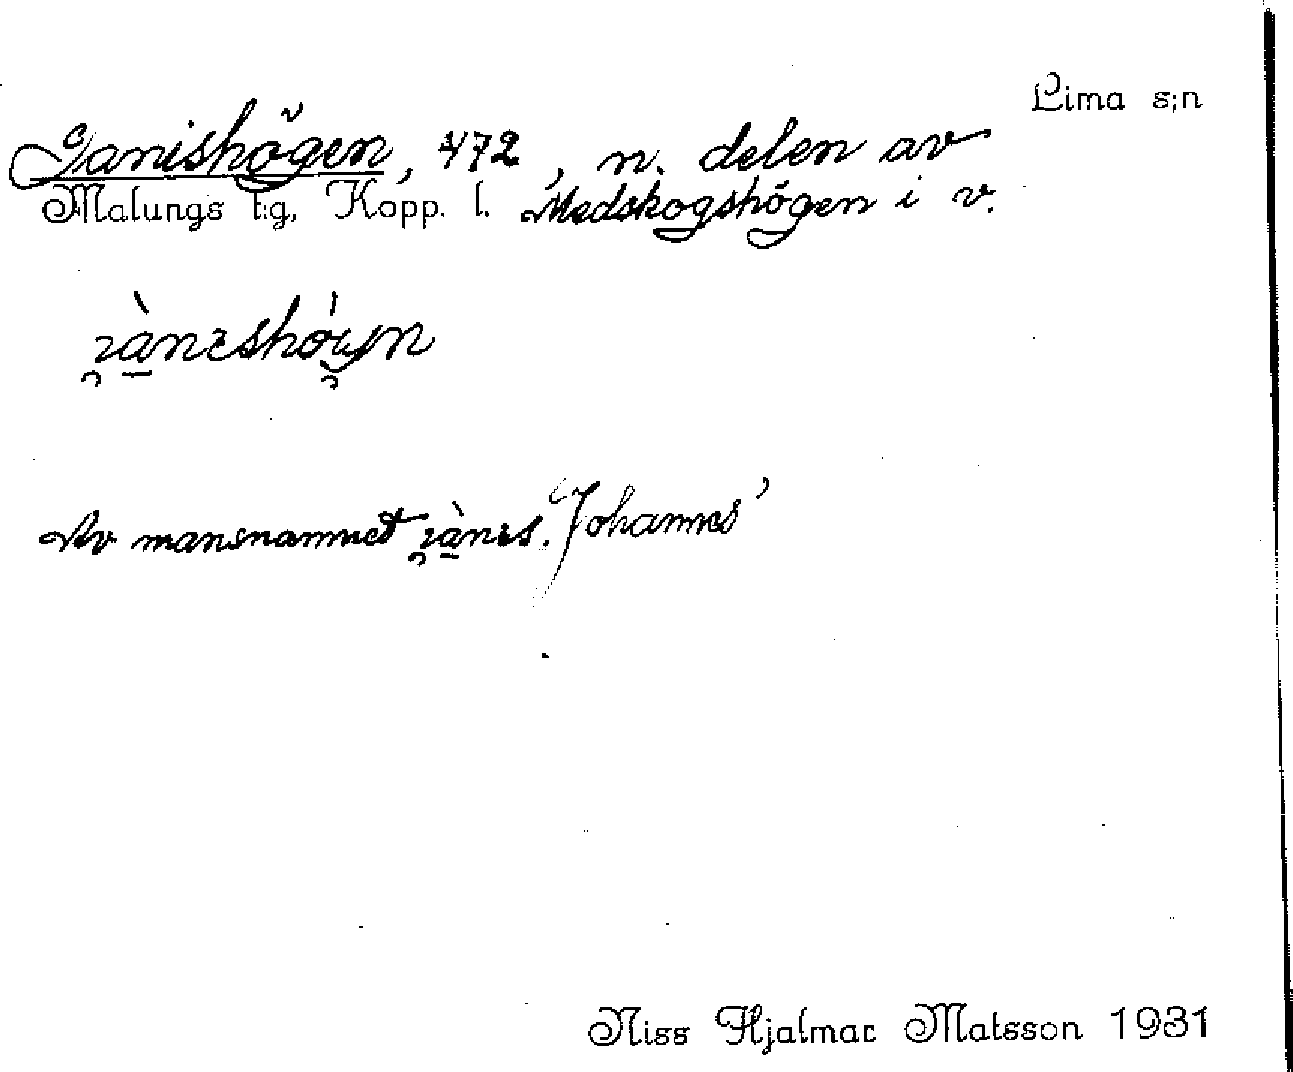 Lima s:n
Janishögen, 472, n. delen av
Malungs t:g, Kopp. l. Medskogshögen i v.
Av mansnamnet . 'Johannes'
Niss Hjalmar Matsson 1931